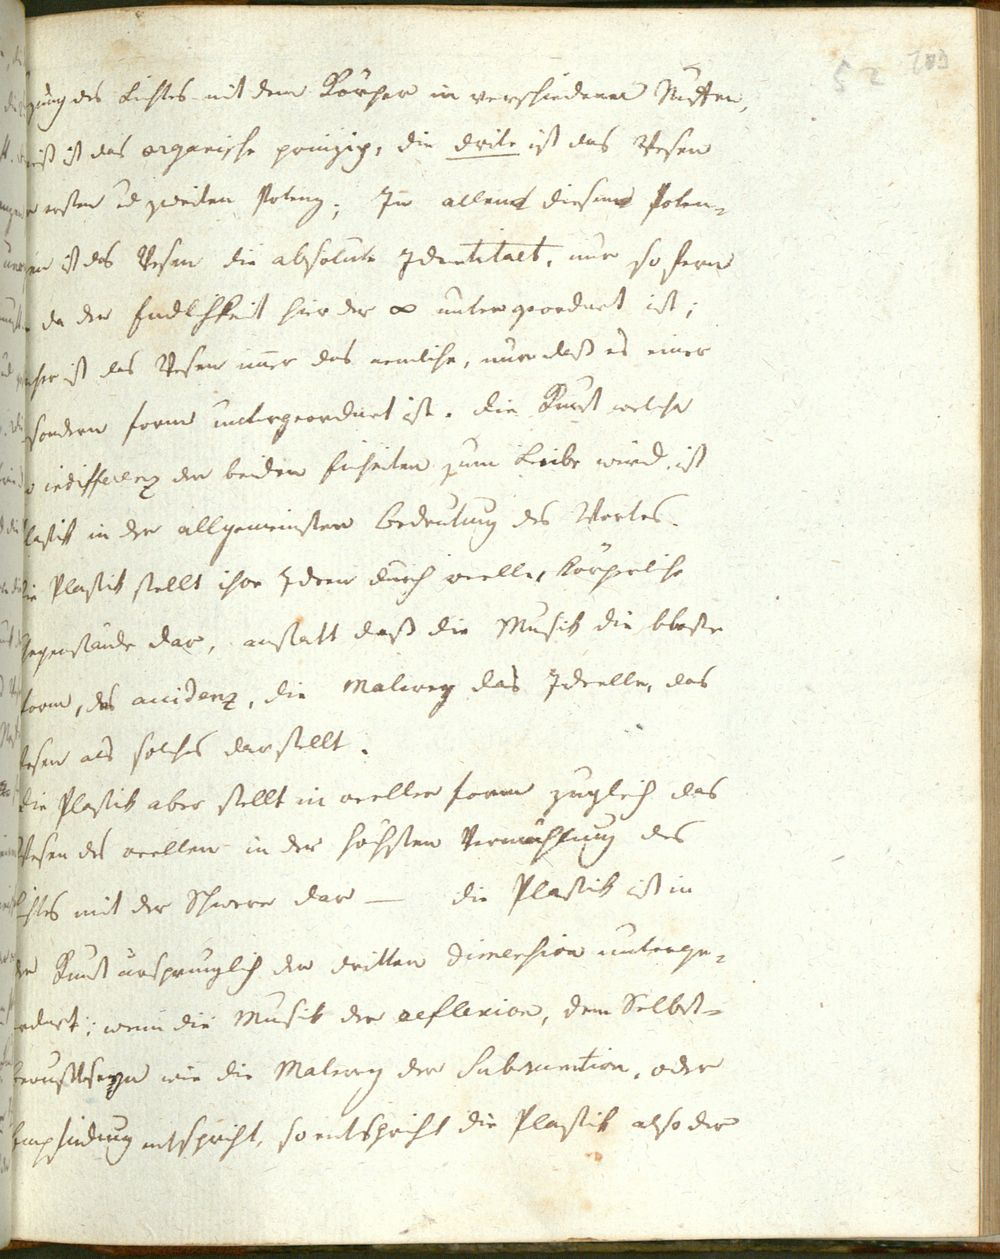 52 103
gung des Lichtes mit dem Körper in verschiedenen Stuffen,
ist das organische prinzip, die drite ist das Wesen
ersten ud zweiten Potenz; In allen diesen Poten-
en ist das Wesen die absolute Identitaet, nur so fern
da der Endlichkeit hier der ∞ untergeordnet ist;
her ist das Wesen imer das nemliche, nur daß es einer
sondern form untergeordnet ist. die Kunst welche
indifferenz der beiden Einheiten zum Leibe wird, ist
lastik in der allgemeinsten bedeutung des Wortes.
ie Plastik stellt ihre Ideen durch reelle, körperliche
egenstände dar, anstatt daß die Musik die bloße
form, das accidenz, die Malerey das Ideelle, das
esen als solches darstellt.
die Plastik aber stellt in reeller form zugleich das
Wesen des reellen in der höchsten Vermählung des
ichtes mit der Schwere dar — die Plastik ist in
der Kunst ursprunglich der dritten dimension unterge-
ordnet; wenn die Musik der reflexion, dem Selbst-
bewußtseyn wie die Malerey der Subsumtion, oder
Empfindung entspricht, so entspricht die Plastik also der